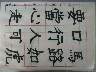 馬路如虎
口行人
要當心走